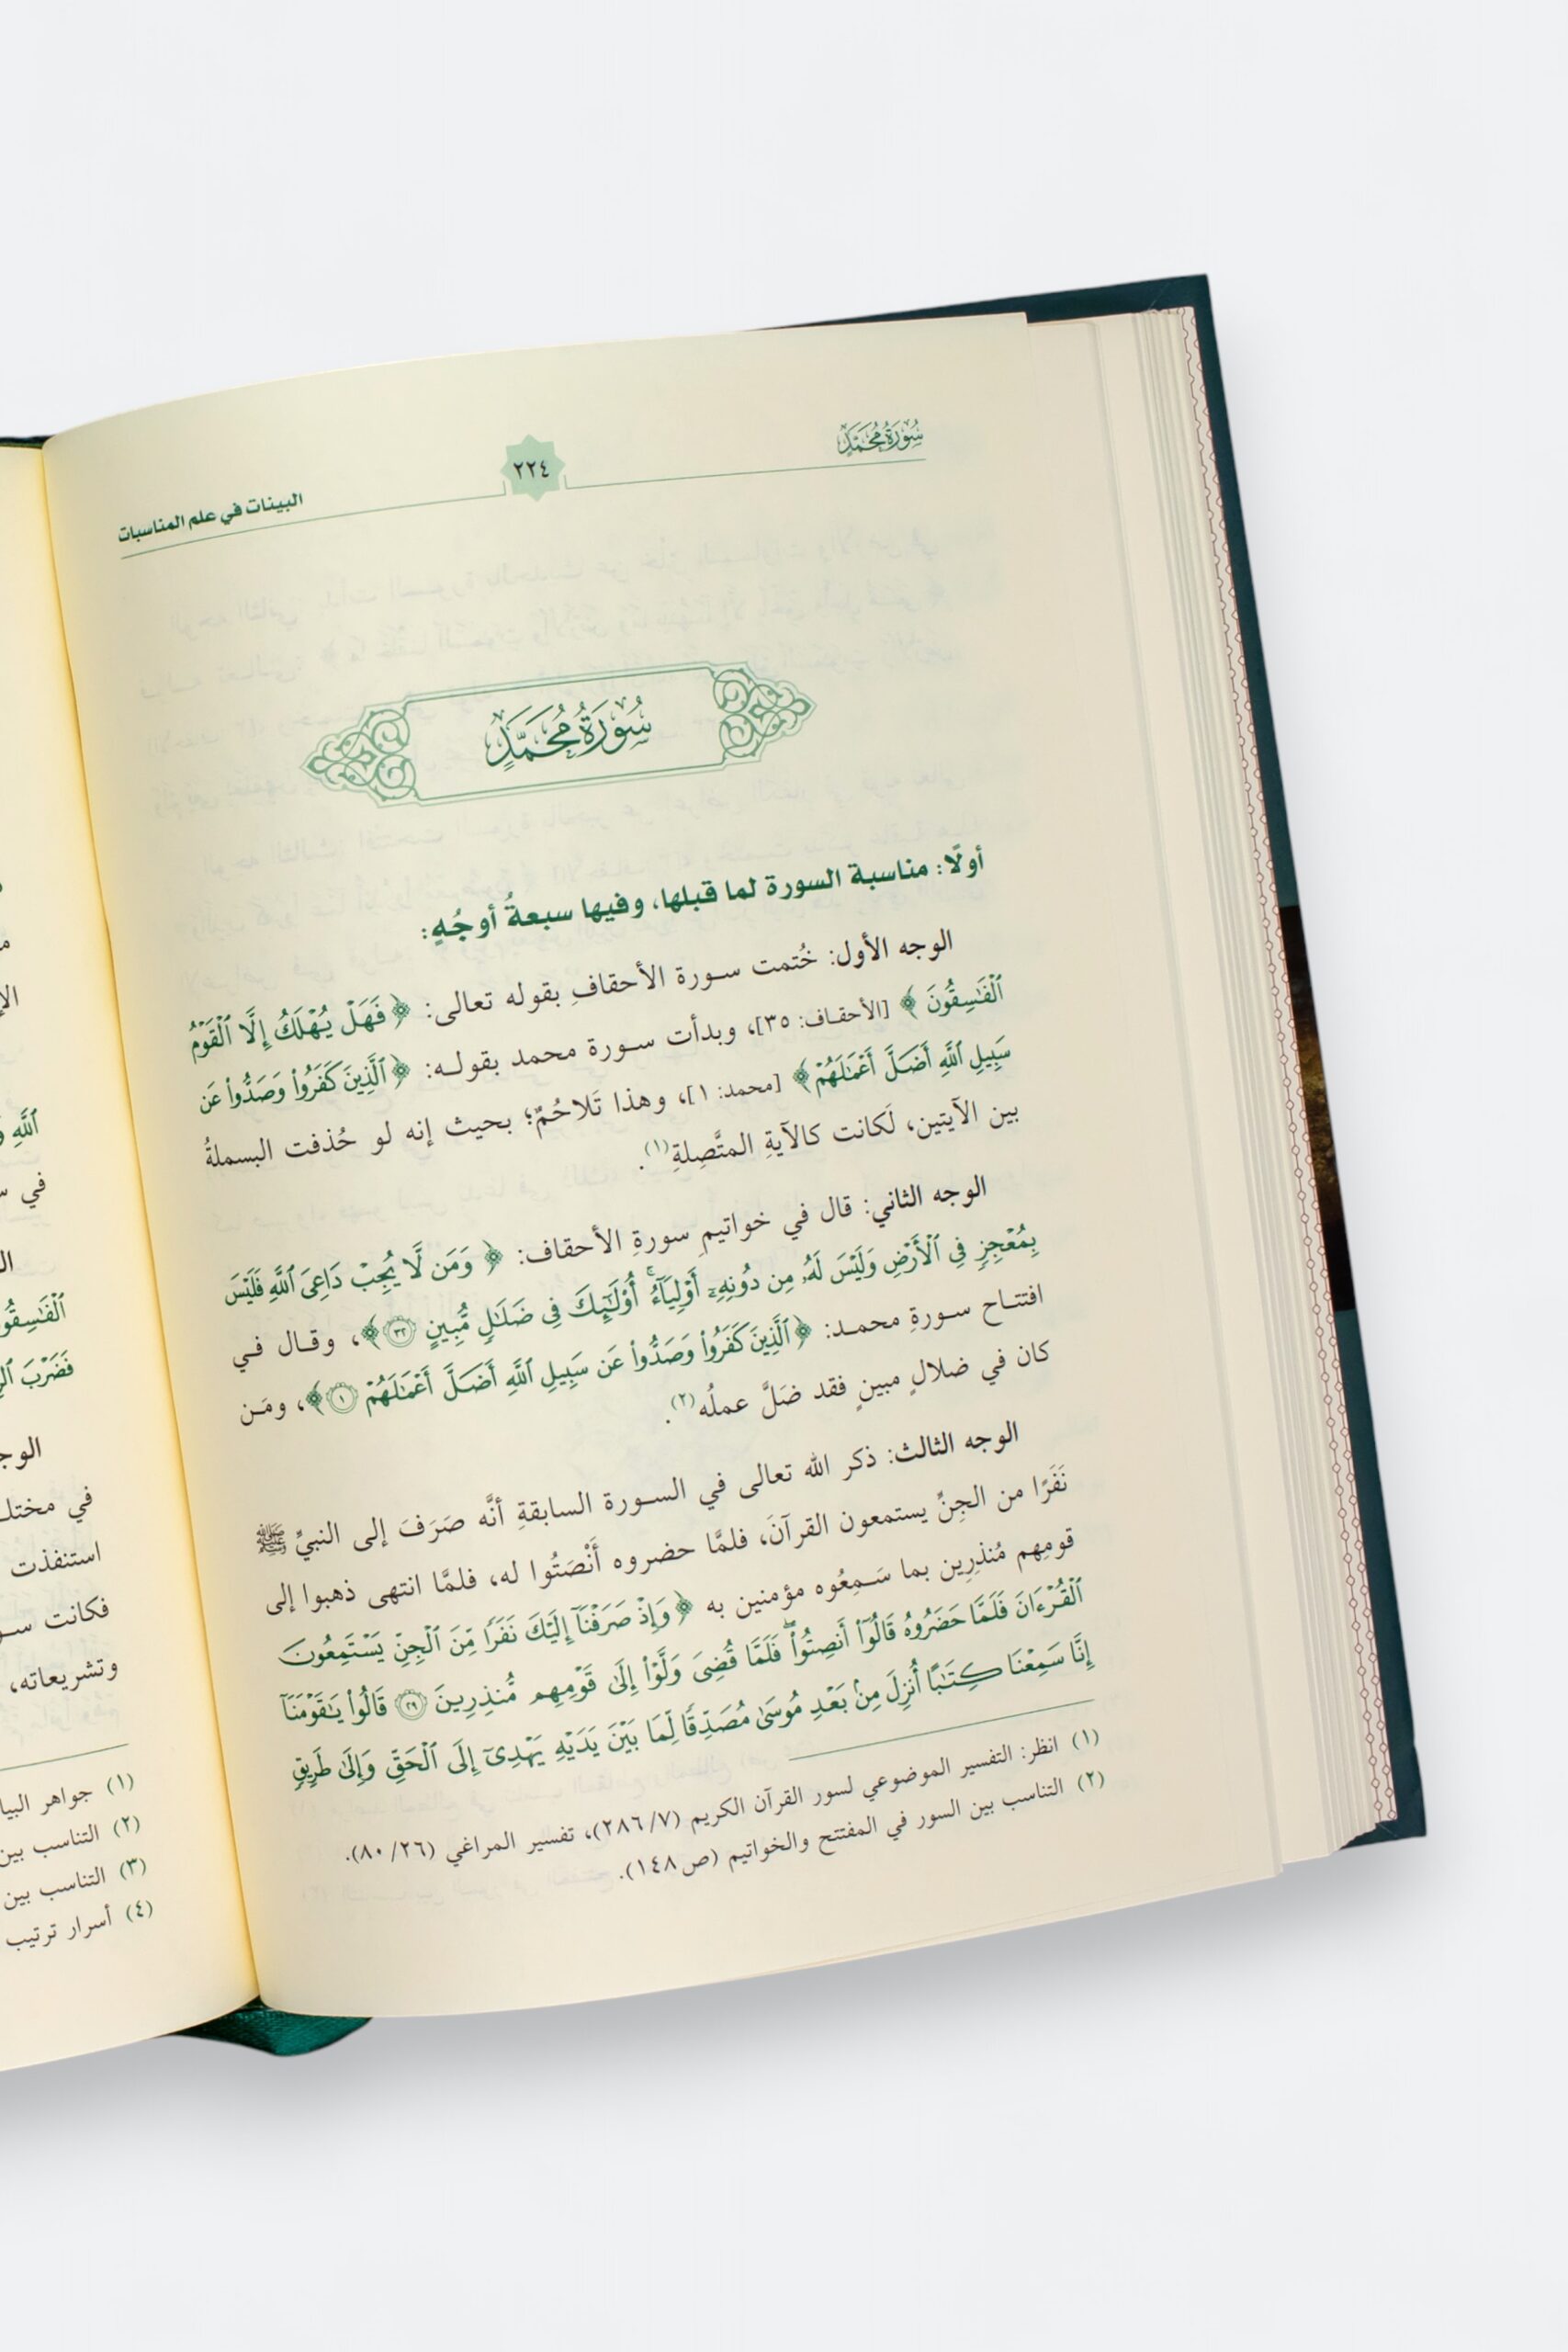 سُورَةُ مُحَمَّدٍ
٢٢٤
البينات في علم المناسبات
سُورَةُ مُحَمَّدٍ
أولًا: مناسبة السورة لما قبلها، وفيها سبعةُ أوجُهٍ:
الوجه الأول: خُتمت سورة الأحقافِ بقوله تعالى: ﴿فَهَلۡ يُهۡلَكُ إِلَّا ٱلۡقَوۡمُ
ٱلۡفَٰسِقُونَ﴾ [الأحقاف: ٣٥]، وبدأت سورة محمد بقوله: ﴿ٱلَّذِينَ كَفَرُواْ وَصَدُّواْ عَن
سَبِيلِ ٱللَّهِ أَضَلَّ أَعۡمَٰلَهُمۡ﴾ [محمد: ١]، وهذا تَلاحُمٌ؛ بحيث إنه لو حُذفت البسملةُ
بين الآيتين، لَكانت كالآيةِ المتَّصِلةِ(١).
الوجه الثاني: قال في خواتيمِ سورةِ الأحقاف: ﴿وَمَن لَّا يُجِبۡ دَاعِيَ ٱللَّهِ فَلَيۡسَ
بِمُعۡجِزٖ فِي ٱلۡأَرۡضِ وَلَيۡسَ لَهُۥ مِن دُونِهِۦٓ أَوۡلِيَآءُۚ أُوْلَٰٓئِكَ فِي ضَلَٰلٖ مُّبِينٍ ٣٢﴾، وقال في
افتتاح سورةِ محمد: ﴿ٱلَّذِينَ كَفَرُواْ وَصَدُّواْ عَن سَبِيلِ ٱللَّهِ أَضَلَّ أَعۡمَٰلَهُمۡ ١﴾، ومَن
كان في ضلالٍ مبينٍ فقد ضَلَّ عملُه(٢).
الوجه الثالث: ذكر الله تعالى في السورة السابقةِ أنَّه صَرَفَ إلى النبيِّ ﷺ
نَفَرًا من الجِنِّ يستمعون القرآنَ، فلمَّا حضروه أَنْصَتُوا له، فلمَّا انتهى ذهبوا إلى
قومِهم مُنذِرِين بما سَمِعُوه مؤمنين به ﴿وَإِذۡ صَرَفۡنَآ إِلَيۡكَ نَفَرٗا مِّنَ ٱلۡجِنِّ يَسۡتَمِعُونَ
ٱلۡقُرۡءَانَ فَلَمَّا حَضَرُوهُ قَالُوٓاْ أَنصِتُواْۖ فَلَمَّا قُضِيَ وَلَّوۡاْ إِلَىٰ قَوۡمِهِم مُّنذِرِينَ ٢٩ قَالُواْ يَٰقَوۡمَنَآ
إِنَّا سَمِعۡنَا كِتَٰبًا أُنزِلَ مِنۢ بَعۡدِ مُوسَىٰ مُصَدِّقٗا لِّمَا بَيۡنَ يَدَيۡهِ يَهۡدِيٓ إِلَى ٱلۡحَقِّ وَإِلَىٰ طَرِيقٖ
(١) انظر: التفسير الموضوعي لسور القرآن الكريم (٧/ ٢٨٦)، تفسير المراغي (٢٦/ ٨٠).
(٢) التناسب بين السور في المفتتح والخواتيم (ص١٤٨).
ٱللَّهِ
في
ٱلۡفَٰسِقُو
فَضَرۡبَ
الوج
في مختلـ
استنفذت
فكانت سـو
وتشريعاته،
(١) جواهر البيا
(٢) التناسب بين
(٣) التناسب بين
(٤) أسرار ترتيب